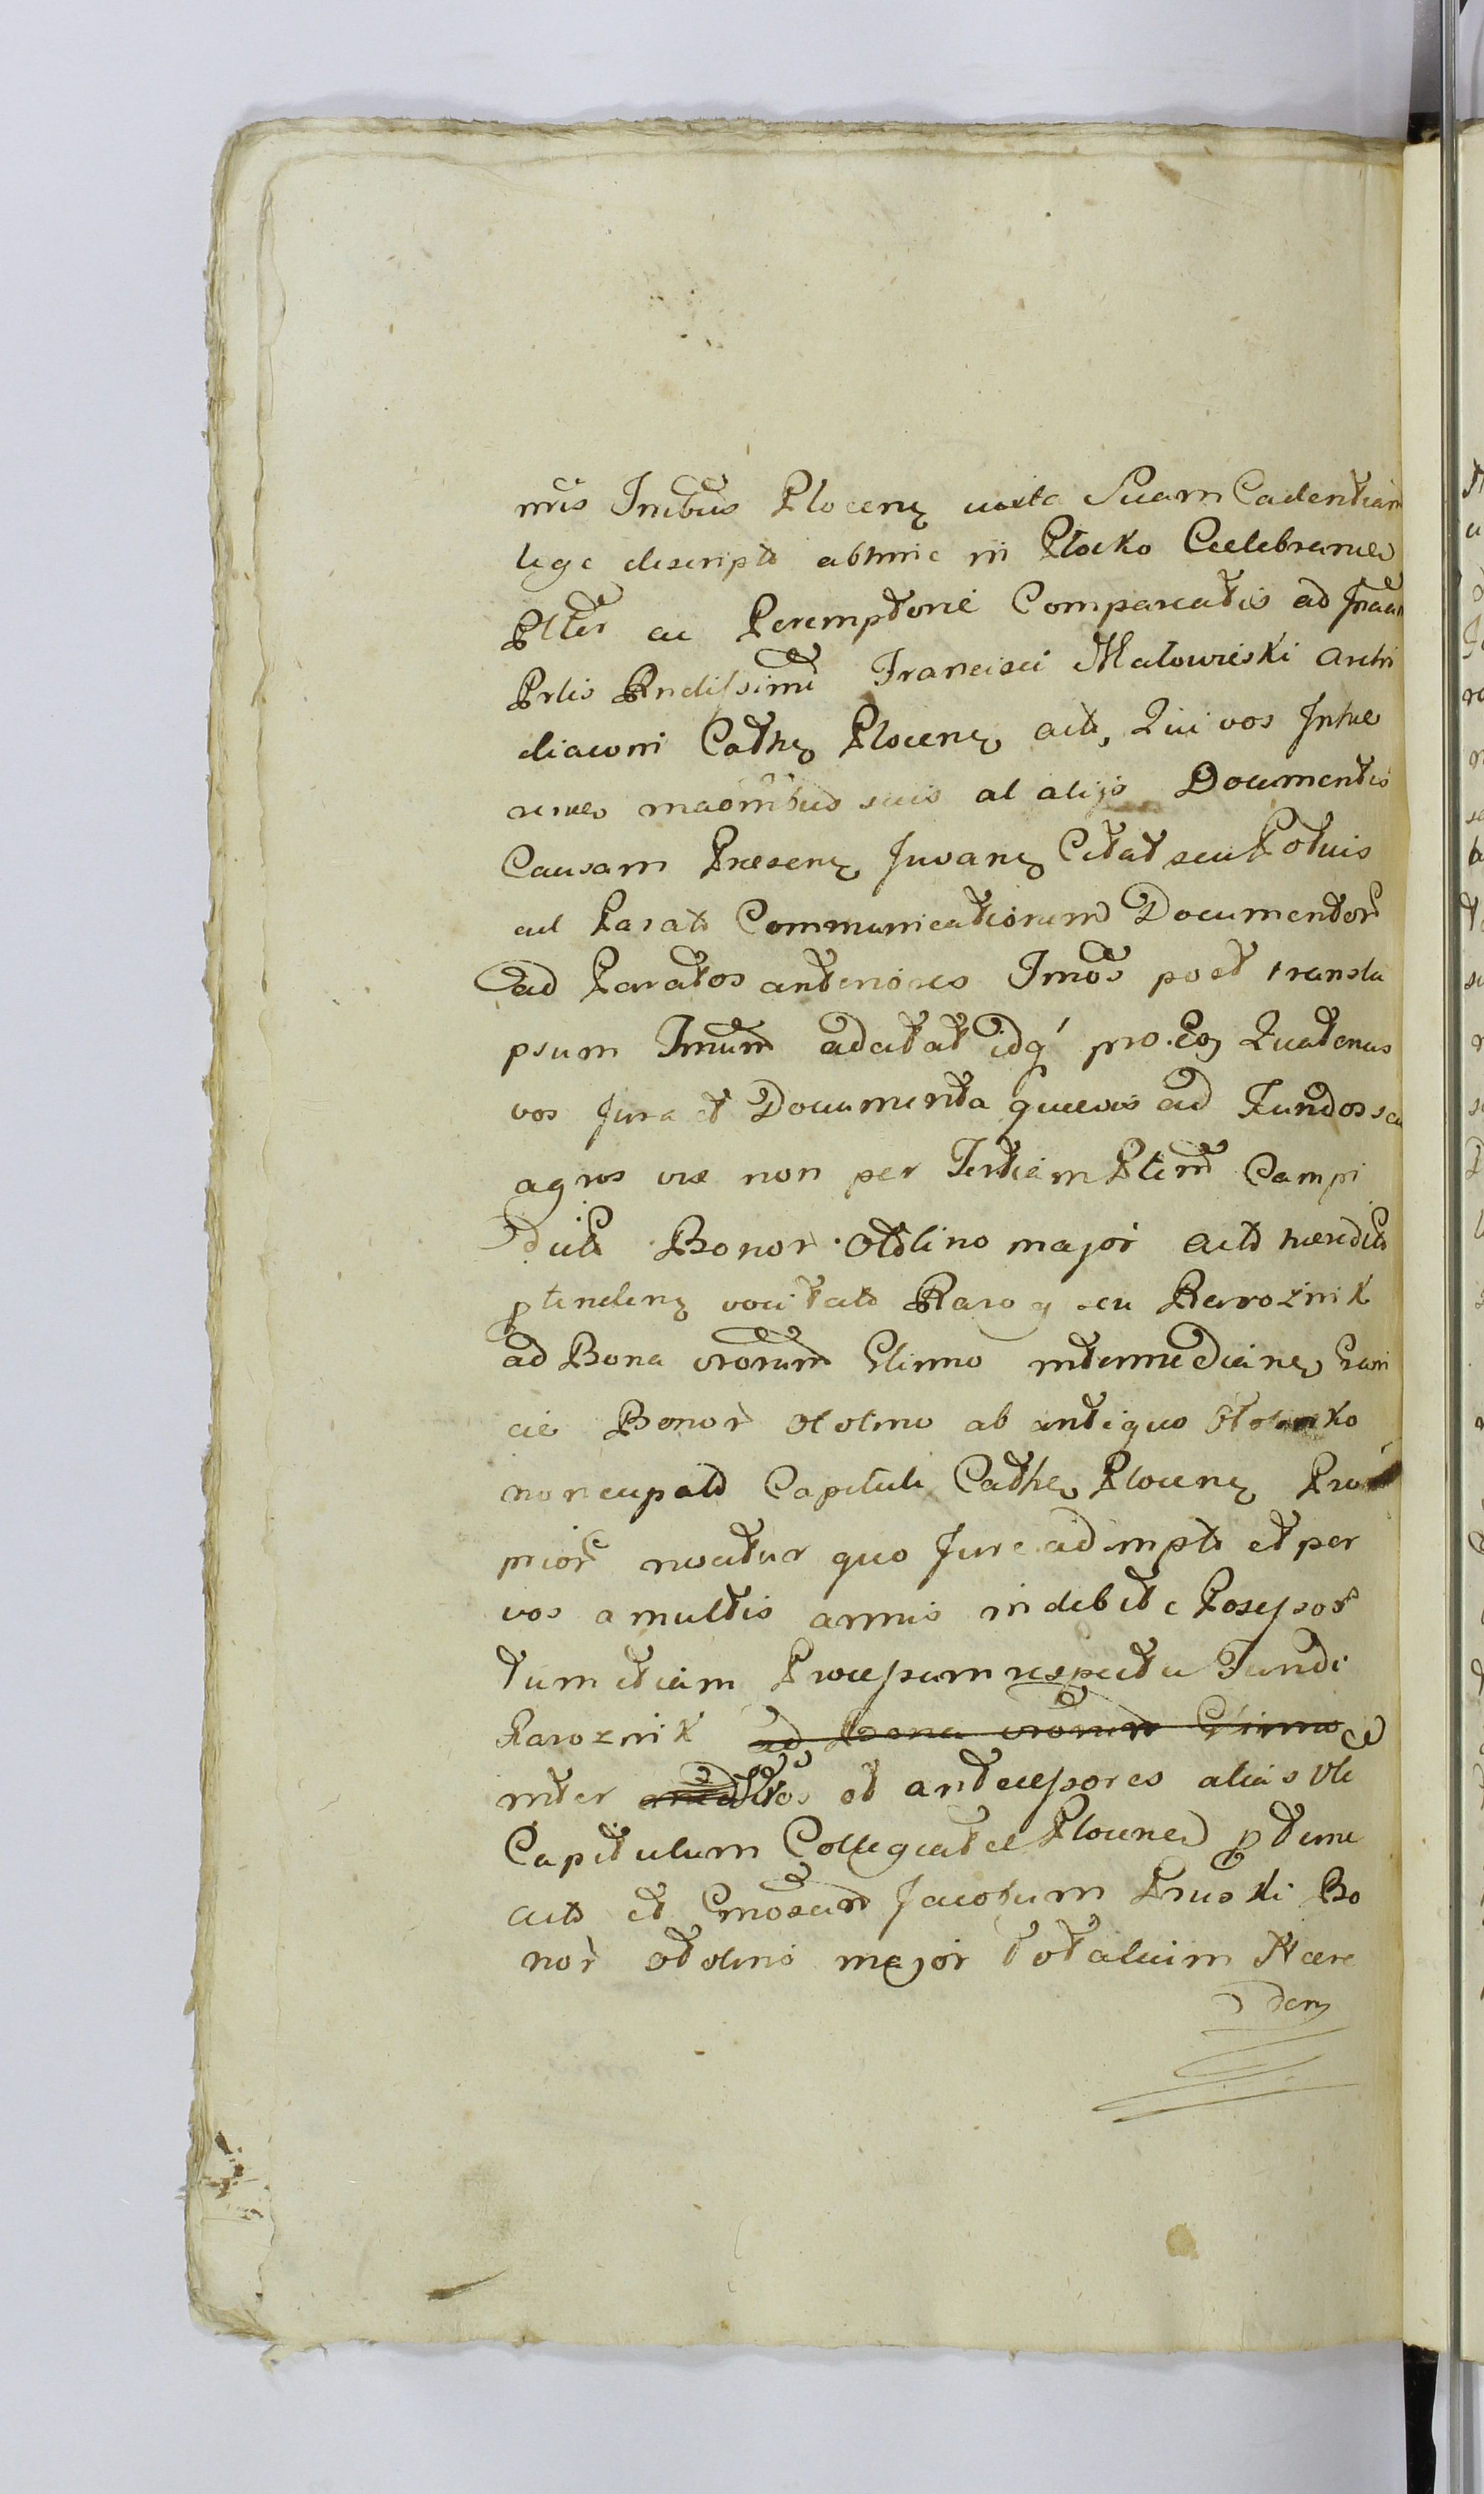 nris Tnibus Plocen juxta Suam Cadentiam
lege descript abhinc in Płocko Celebran
Plter ac Peremptorie Compareatis ad Jnaam
Prlis Rndissimi Francisci Malowieski Archi
diaconi Cathe Plocen act, Qui vos Inhae
ren suis al alijs Documentis
Causam Praesen Juvan Citat seu Potius
ad Parat Communicationum Documentor
ad Paratos anteriores Tmos post transla
psum Tmum adcitat idq pro Eo Quatenus
vos Jura et Documenta quaevis ad Fundos seu
agros vix non per Tertiam Ptem Campi
dict Bonor Otolino major act haeredit
ptenden vocitat Raro seu Rarożnik
ad Bona vrorum Glinno intermedian Grani
cie Bonor Otolino ab antiquo
noncupat Capituli Cathe Plocen Pro
prior nscatur quo Jure adempt et per
vos a multis annis indebite Possessor
tum etiam Processum respectu Fundi
Raroznik ad Bona vrorum Glinno
inter et antecessores alias Vle
Capitulum Collegiatae Plocen ptunc
act et Gnosum Jacobum Pruski Bo
nor Otolino major totalium Haere
den